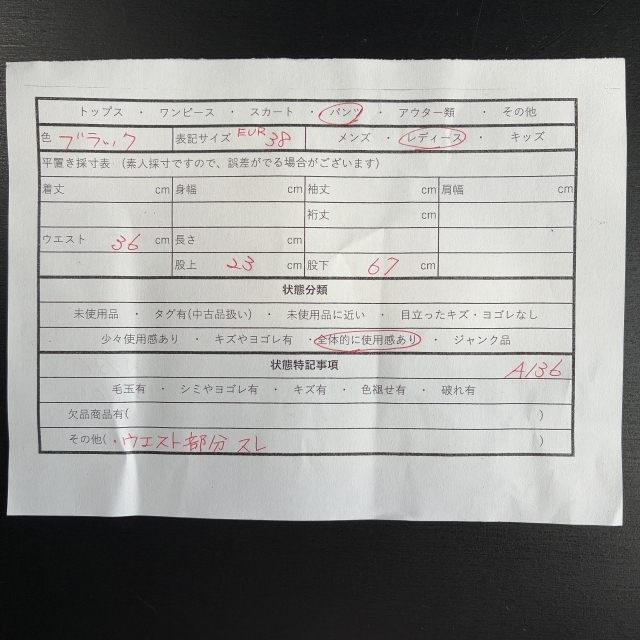 トップス ・ ワンピース ・ スカート ・ パンツ ・ アウター類 ・ その他
色 ブラック 表記サイズ EUR 38 メンズ ・ レディース ・ キッズ
平置き採寸表 (素人採寸ですので、誤差がでる場合がございます)
着丈 cm 身幅 cm 袖丈 cm 肩幅 cm
裄丈 cm
ウエスト 36 cm 長さ cm
股上 23 cm 股下 67 cm
状態分類
未使用品 ・ タグ有(中古品扱い) ・ 未使用品に近い ・ 目立ったキズ・ヨゴレなし
少々使用感あり ・ キズやヨゴレ有 ・ 全体的に使用感あり ・ ジャンク品
状態特記事項 A136
毛玉有 ・ シミやヨゴレ有 ・ キズ有 ・ 色褪せ有 ・ 破れ有
欠品商品有( )
その他( ・ウエスト部分 スレ )